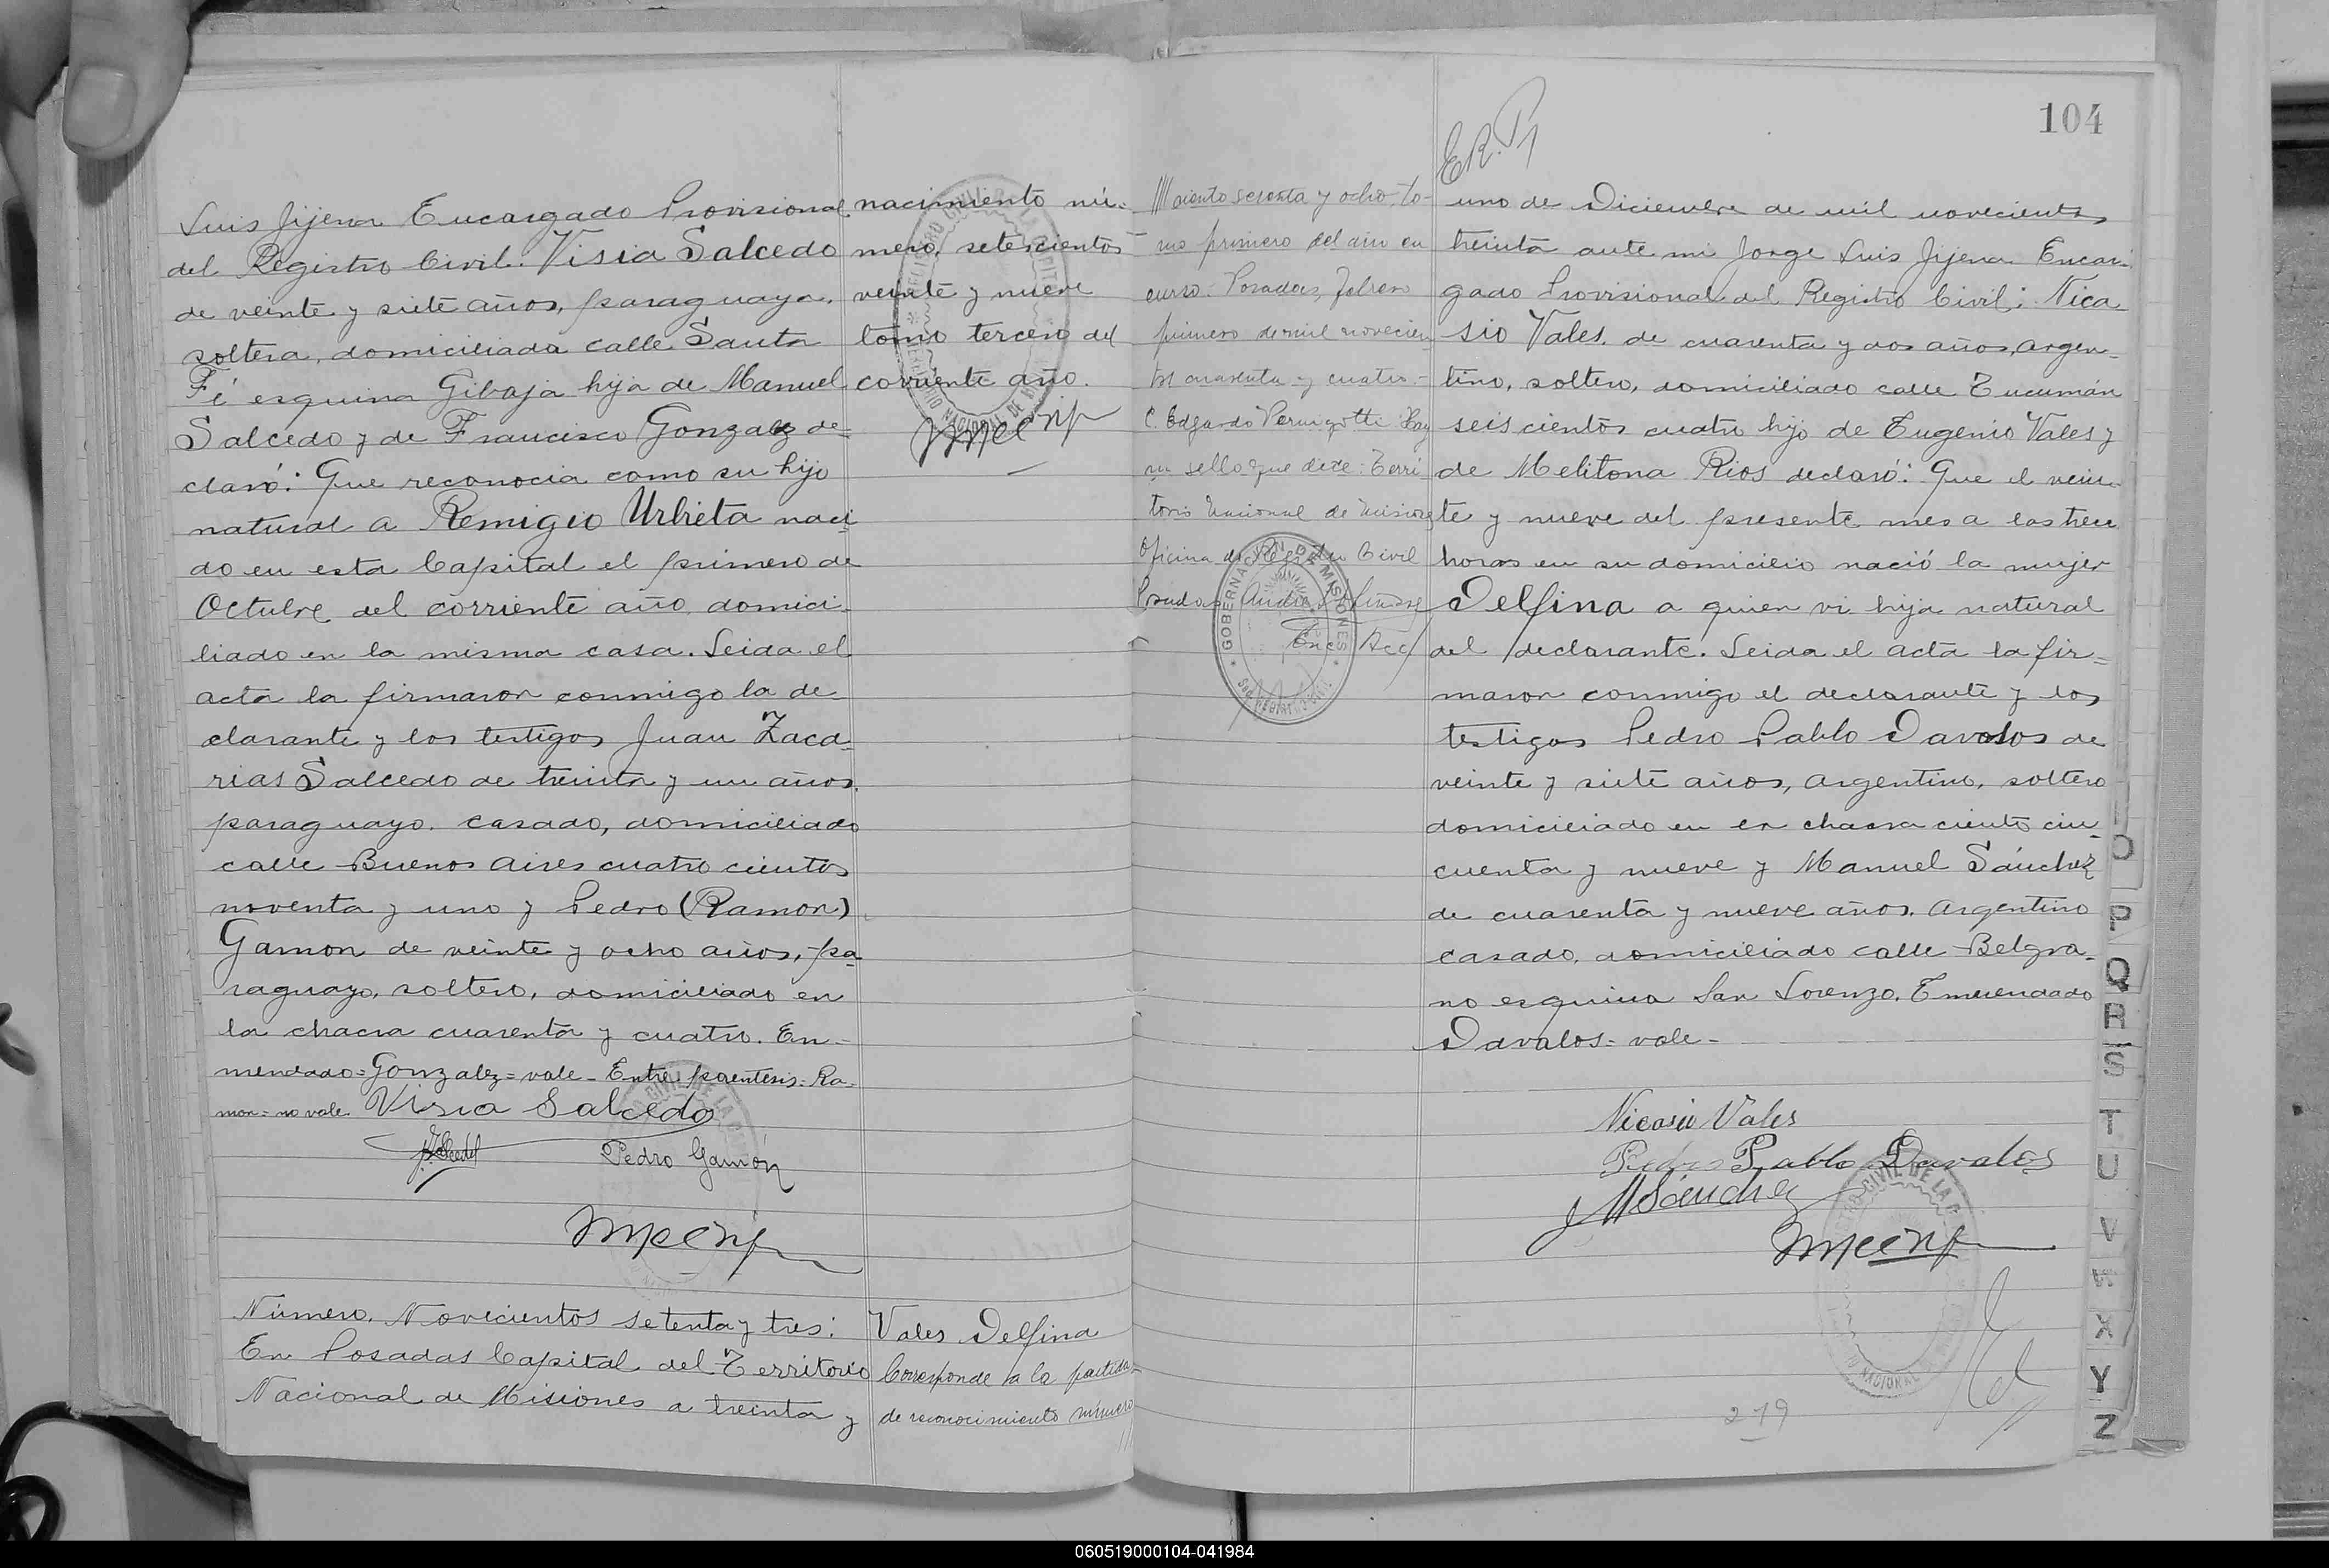 Luis Jijena Encargado Provisional
del Registro Civil: Visia Salcedo
de veinte y siete años, paraguaya,
soltera, domiciliada calle Santa
Fé esquina Gibaja hija de Manuel
Salcedo y de Francisca Gonzalez de-
claró: Que reconocia como su hijo
natural a Remigio Urbieta naci
do en esta Capital el primero de
Octubre del corriente año domici-
liado en la misma casa. Leida el
acta la firmaron conmigo la de-
clarante y los testigos Juan Zaca-
rias Salcedo de treinta y un años,
paraguayo, casado, domiciliado
calle Buenos Aires cuatro cientos
noventa y uno y Pedro (Ramon)
Gamon de veinte y ocho años, pa
raguayo, soltero, domiciliado en
la chacra cuarenta y cuatro. En-
mendado=Gonzalez=vale-Entre parentesis=Ra-
mon=no vale. Visia Salcedo
Pedro Gamón
Número. Novecientos setenta y tres:
En Posadas Capital del Territorio
Nacional de Misiones a treinta y
nacimiento nú-
mero setescientos
veinte y nueve
tomo tercero del
corriente año.
Vales Delfina
Corresponde a la partida
de reconocimiento número
///
104
E.R.
/// ciento sesenta y ocho-to-
mo primero del año en
curso. Posadas, Febrero
primero de mil novecien
tos cuarenta y cuatro.-
C. Edgardo Pernigotti Hay
un sello que dice: Terri
torio Nacional de Misiones
Oficina del Registro Civil
Posadas
Enc. Acc
GOBERNACION DE MISIONES
uno de Diciembre de mil novecientos
treinta ante mi Jorge Luis Jijena Encar-
gado Provisional del Registro Civil: Nica-
sio Vales, de cuarenta y dos años, argen-
tino, soltero, domiciliado calle Tucumán
seis cientos cuatro hijo de Eugenio Vales y
de Melitona Rios declaró: Que el vein-
te y nueve del presente mes a las trece
horas en su domicilio nació la mujer
Delfina a quien vi hija natural
del declarante. Leida el acta la fir-
maron conmigo el declarante y los
testigos Pedro Pablo Davalos de
veinte y siete años, argentino, soltero
domiciliado en la chacra ciento cin-
cuenta y nueve y Manuel Sánchez
de cuarenta y nueve años, argentino
casado, domiciliado calle Belgra-
no esquina San Lorenzo. Enmendado
Davalos=vale-
Nicasio Vales
Pedro Pablo Davalos
M Sánchez
219
O
P
Q
R
S
T
U
V
W
X
Y
Z
060519000104-041984